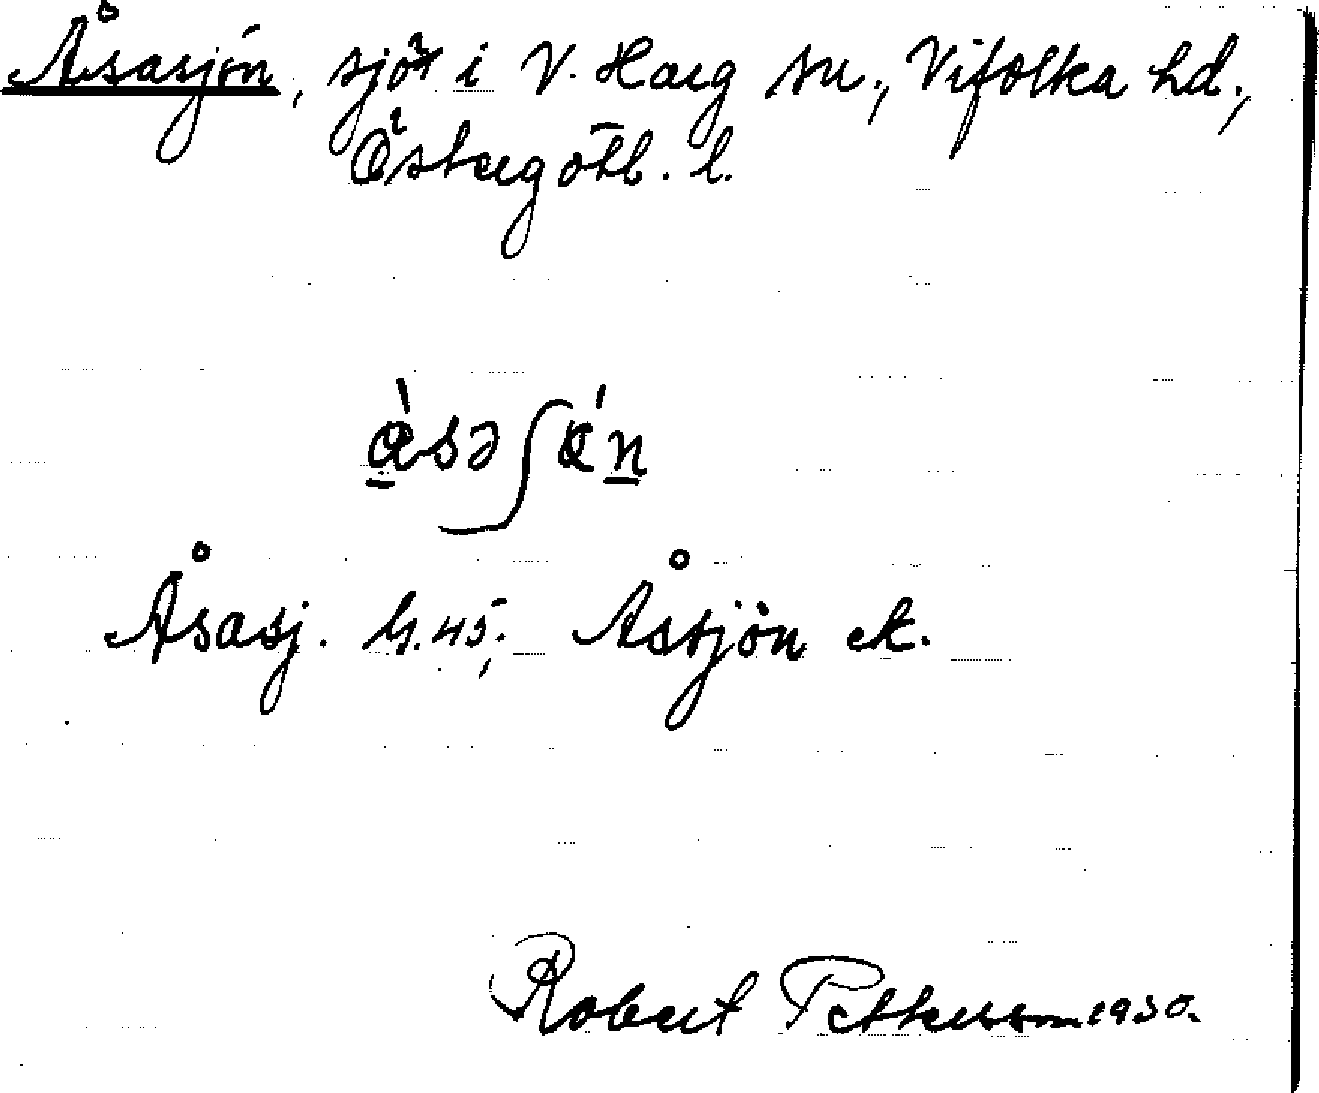 Åsasjön, sjö i V. Harg sn., Vifolka hd.,
Östergötl. l.
Åsasj. G. 45; Åssjön ek.
Robert Pettersson 1930.